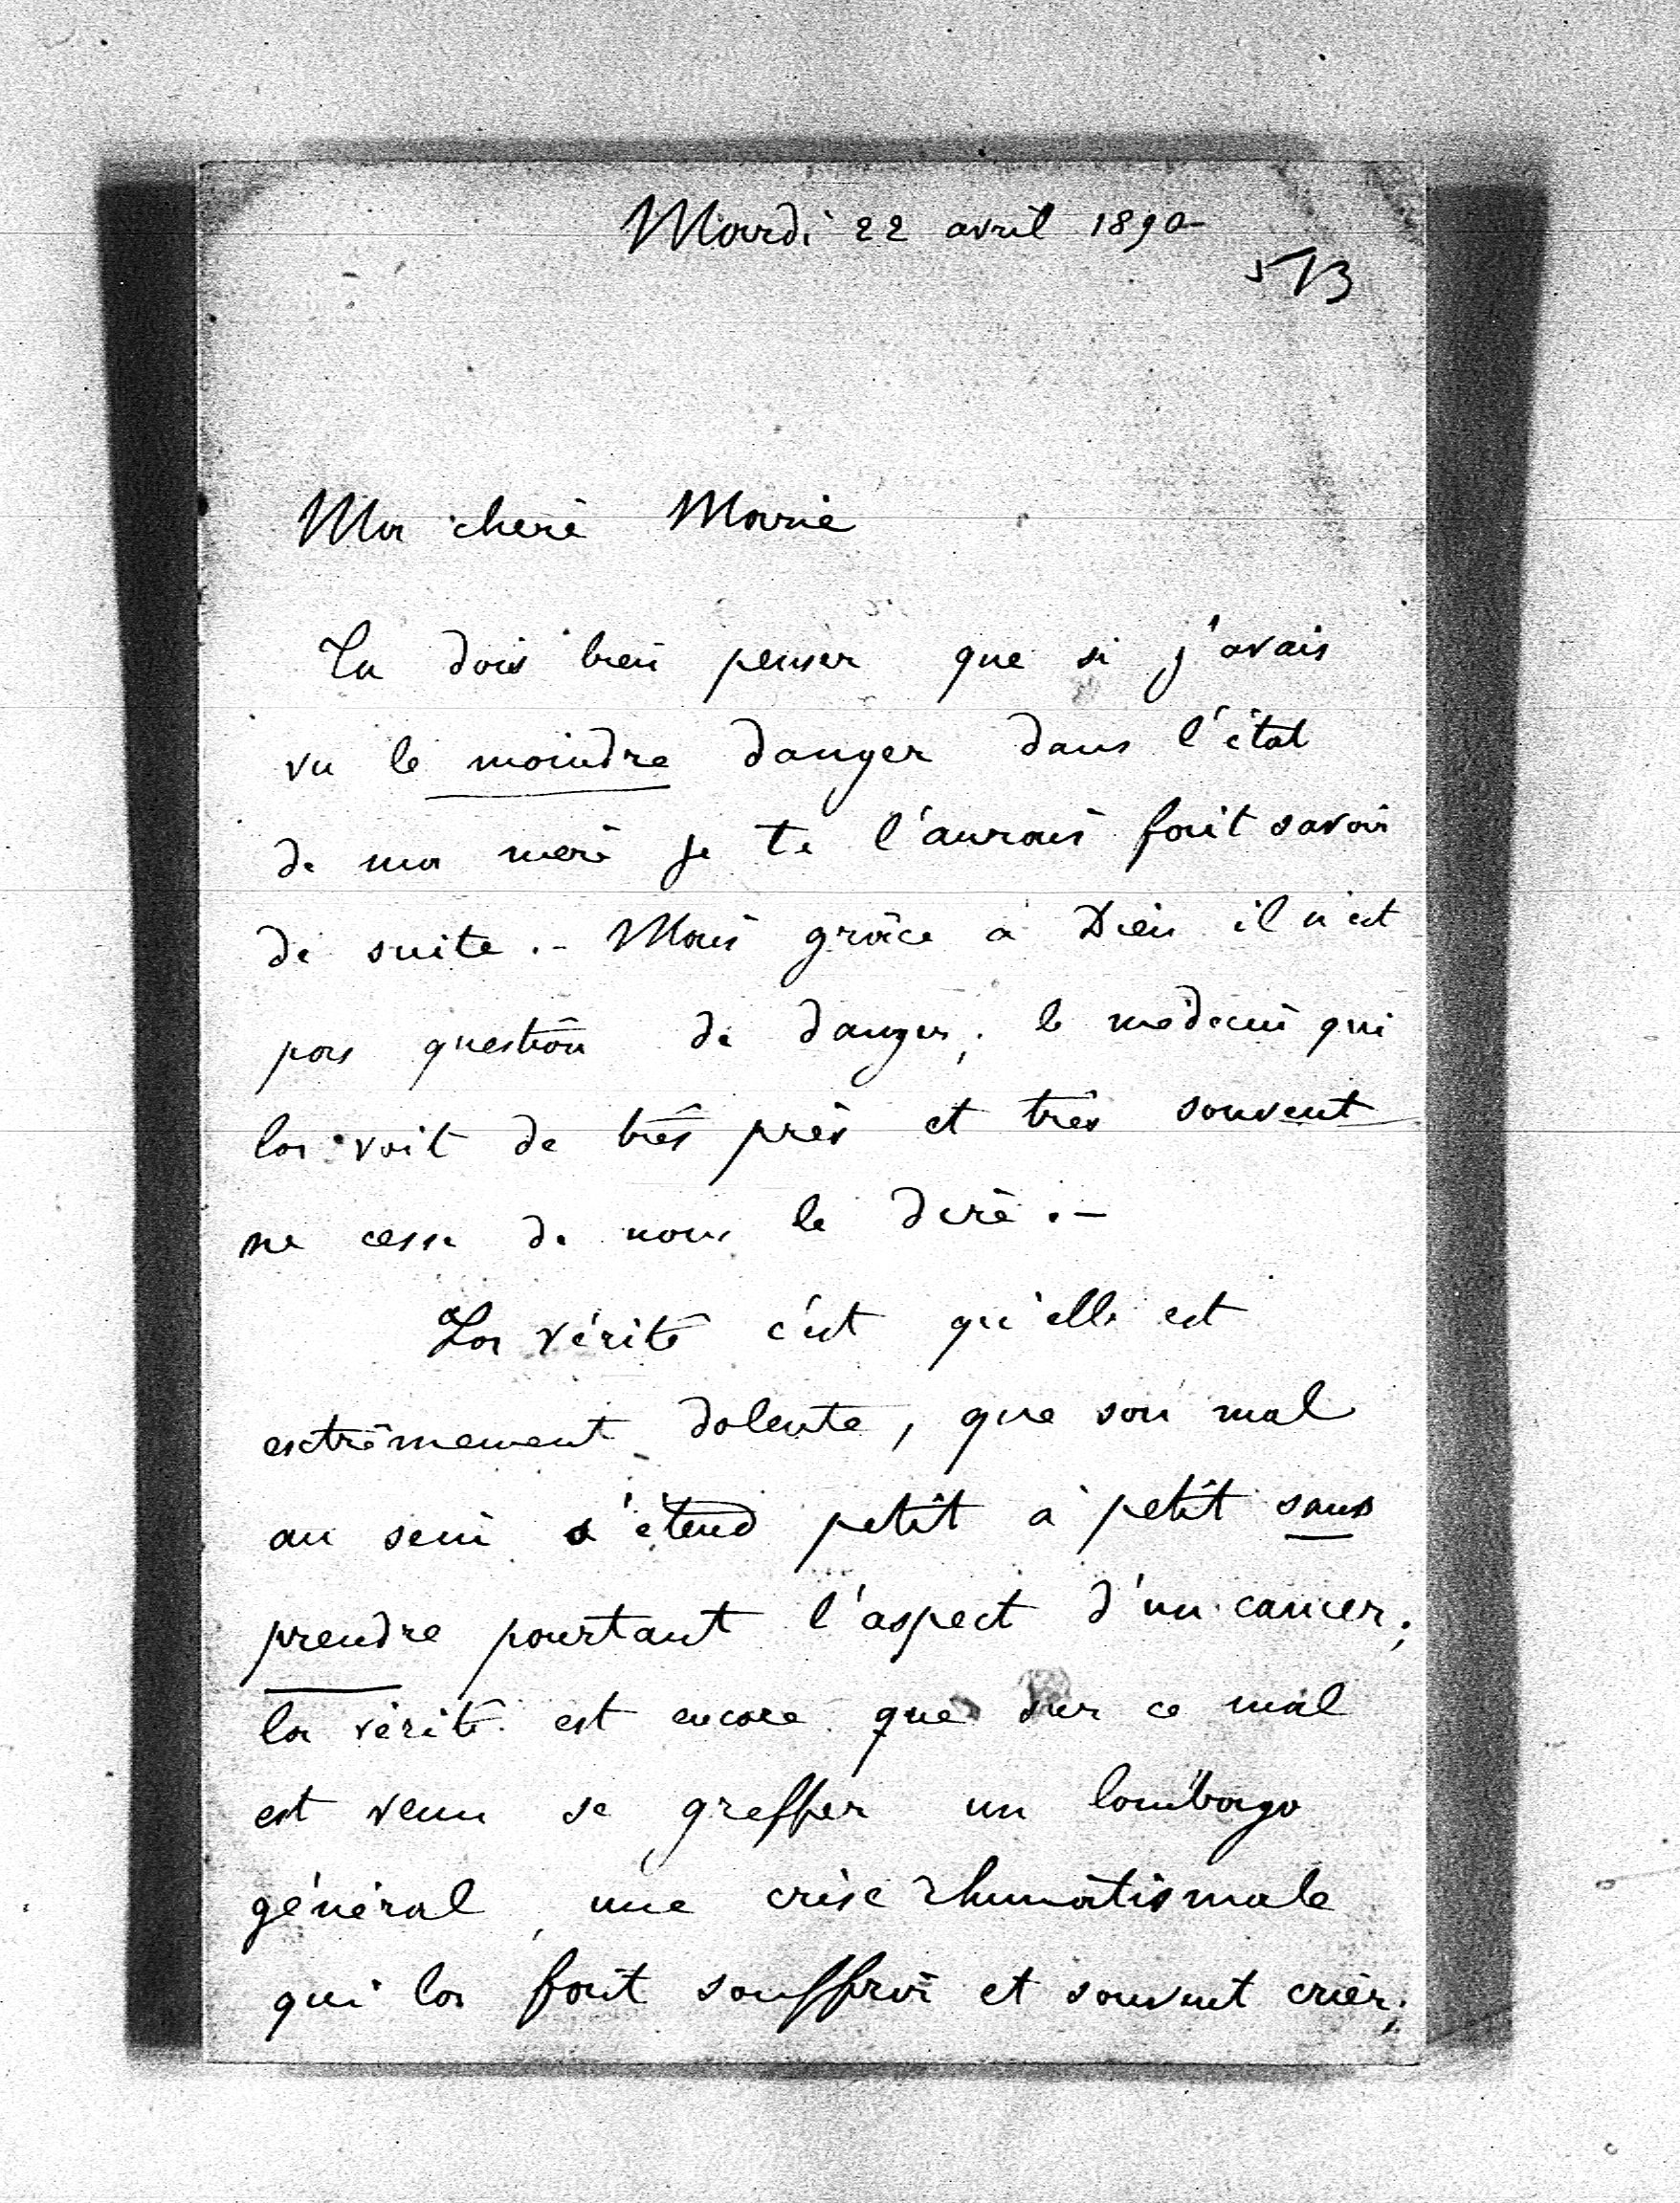 Mardi 22 avril 1890
513
Ma chère Marie
Tu dois bien penser que si j'avais
vu le moindre danger dans l'état
de ma mère je te l'aurais fait savoir
de suite. - Mais grâce à Dieu il n'est
pas question de danger; le médecin qui
la voit de très près et très souvent
ne cesse de nous le dire. -
La vérité c'est qu'elle est
extrêmement dolente, que son mal
au sein s'étend petit à petit sans
prendre pourtant l'aspect d'un cancer;
la vérité est encore que sur ce mal
est venu se greffer un lombago
général, une crise rhumatismale
qui la fait souffrir et souvent crier;